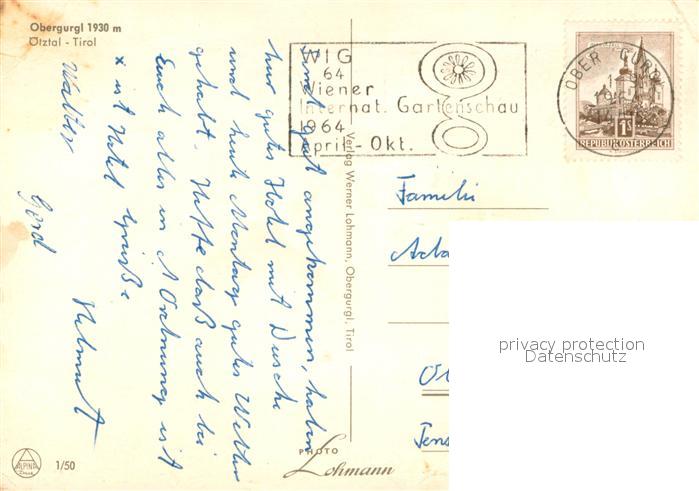 Obergurgl 1930 m
Ötztal - Tirol
WIG
64
Wiener
Internat. Gartenschau
1964
April - Okt.
OBERGURGL
1S
REPUBLIK ÖSTERREICH
Verlag Werner Lohmann, Obergurgl, Tirol
gut angekommen, haben
gutes Hotel mit Dusche
und heute Montag gutes Wetter
gehabt. Hoffe daß auch bei
Euch alles in Ordnung ist
x ist Hotel Grüße
Walter
Gerd
Helmut
Familie
privacy protection
Datenschutz
PHOTO
Lohmann
ALPINA
Druck
1/50